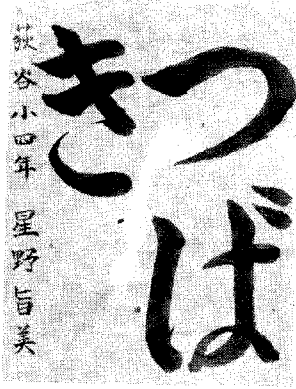 つば
き
荻谷小四年 星野旨美